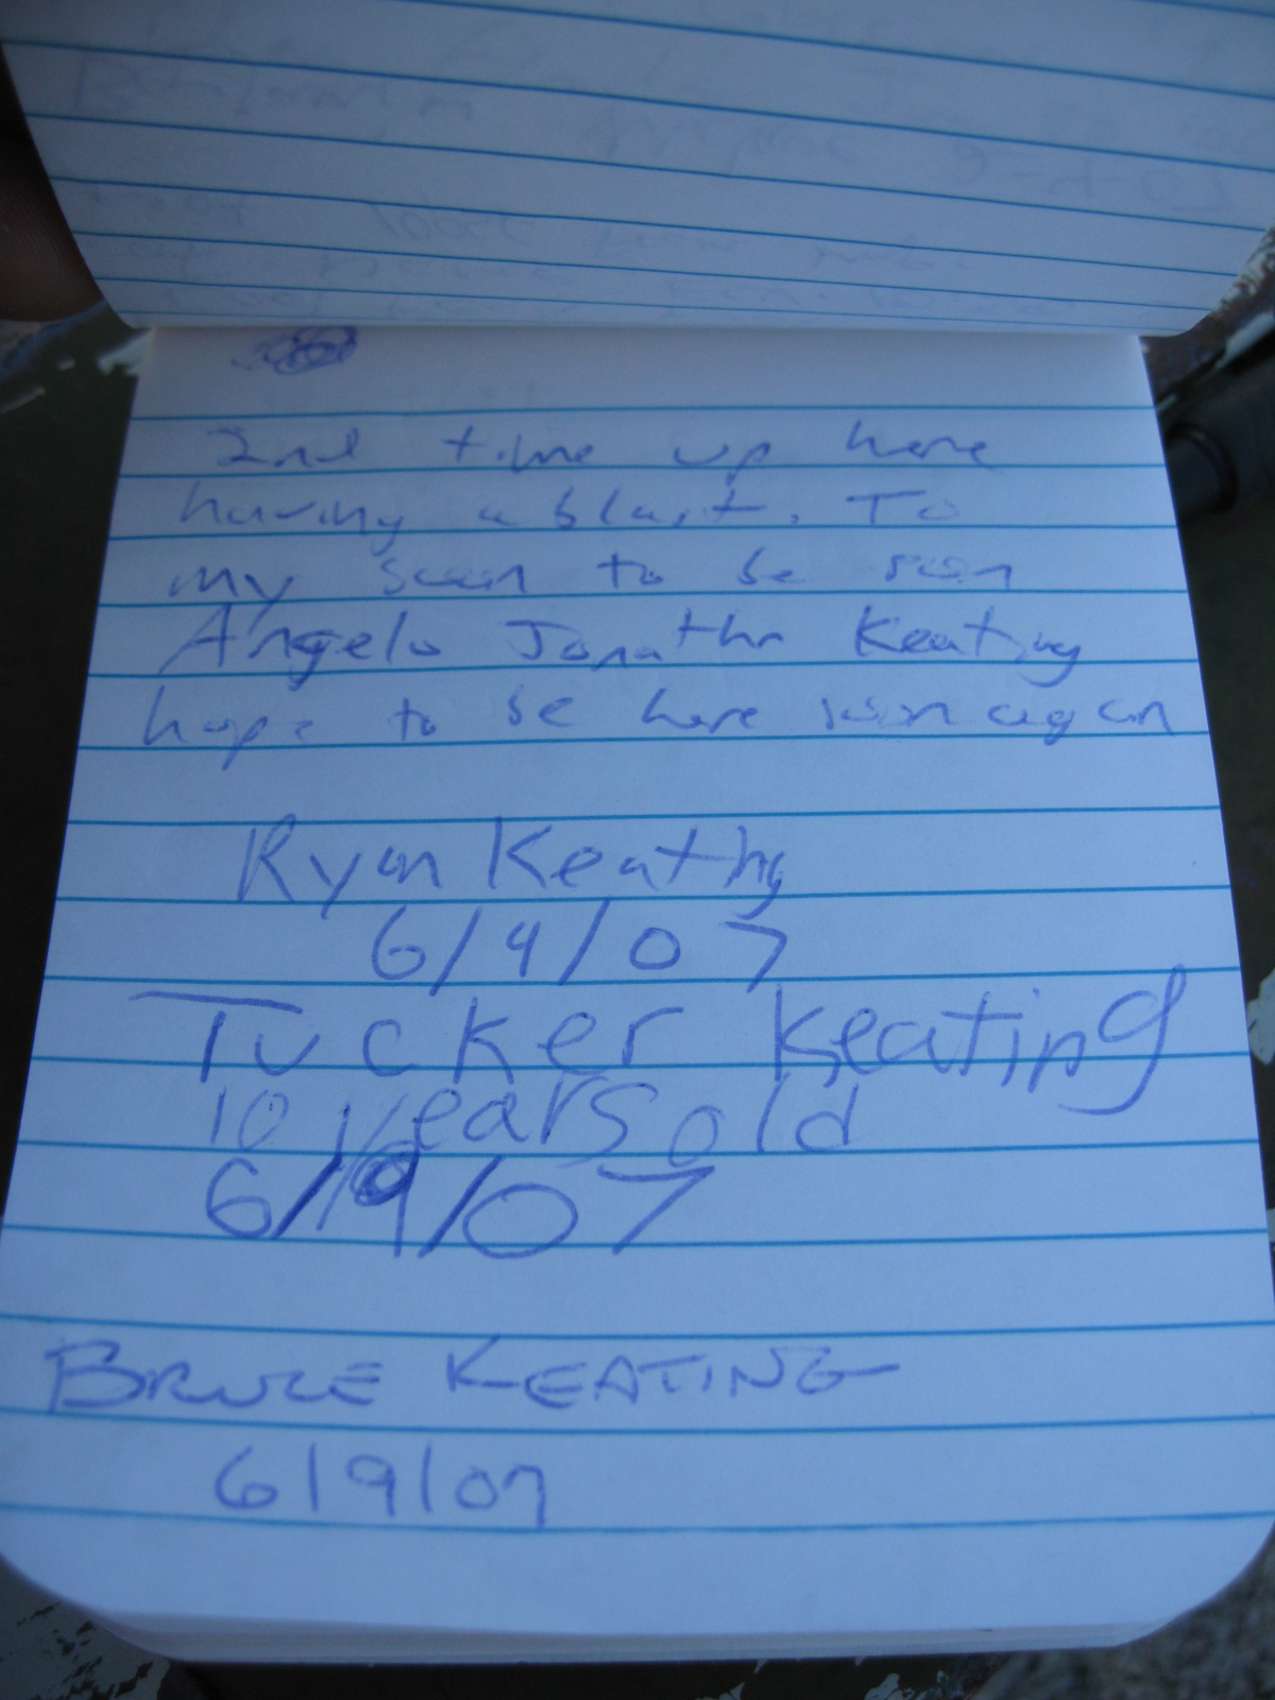 2nd time up here
having a blast. To
my soon to be son
Angelo Jonathn Keating
hope to be here soon again
Ryan Keating
6/9/07
Tucker Keating
10 years old
6/9/07
BRUCE KEATING
6/9/07